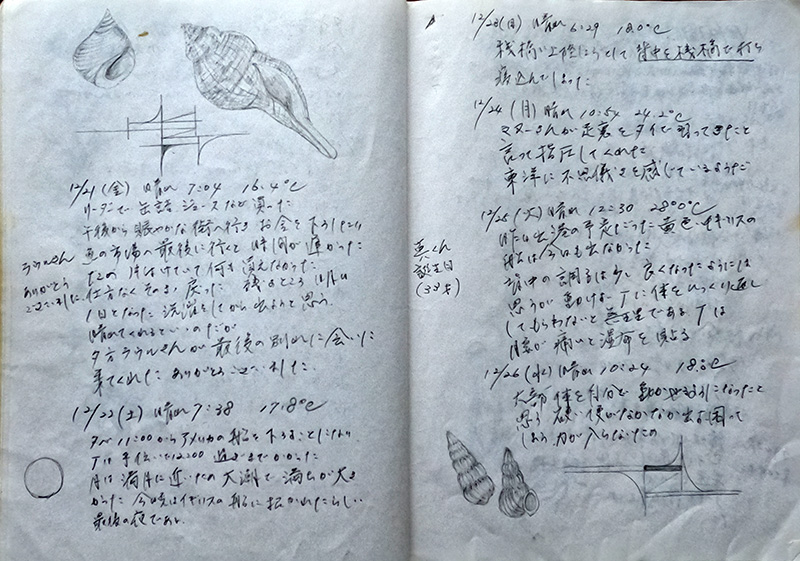 12/21(金) 晴れ 7:04 16.4℃
リーダーで缶詰 ジュースなど買った
午後から賑やかな街へ行き お金を下ろしたり
魚の市場へ最後に行くと時間が遅かった
片付けていて何も買えなかった
仕方なくそのまま戻った 残るところ
1日となった 洗濯をしてから出ようと思う
晴れてくれるといいのだが
夕方ラウルさんが最後の別れに会いに
来てくれた ありがとうございました
ラウルさん
ありがとう
ございました
12/22(土) 晴れ 7:38 17.8℃
夕べ11:00からアメリカの船を下ろすことになり
Tは手伝いで12:00過ぎまでかかった
月は満月に近いため大潮で満ちが大き
かった 今晩はイギリスの船に
最後の夜である
12/23(日) 晴れ 6:29 18.0℃
桟橋に上陸しようとして背中を桟橋で打ち
落込んでしまった
12/24(月) 晴れ 10:54 24.2℃
マヌーさんが足裏をタイで習ってきたと
言って指圧してくれた
東洋に不思儀さを感じているようだ
12/25(火) 晴れ 12:30 28.0℃
昨日出港の予定だった黄色いイギリスの
船は今日も出なかった
背中の調子は少し良くなったようには
思うが動けない Tに体をひっくり返し
してもらわないと Tは
腰が痛いと湿布を貼る
誕生日
12/26(水) 晴れ 10:24 18.8℃
大部体を自分で動かせるようになったと
思う 硬い便がなかなか出ず困って
しまう 力が入らないため